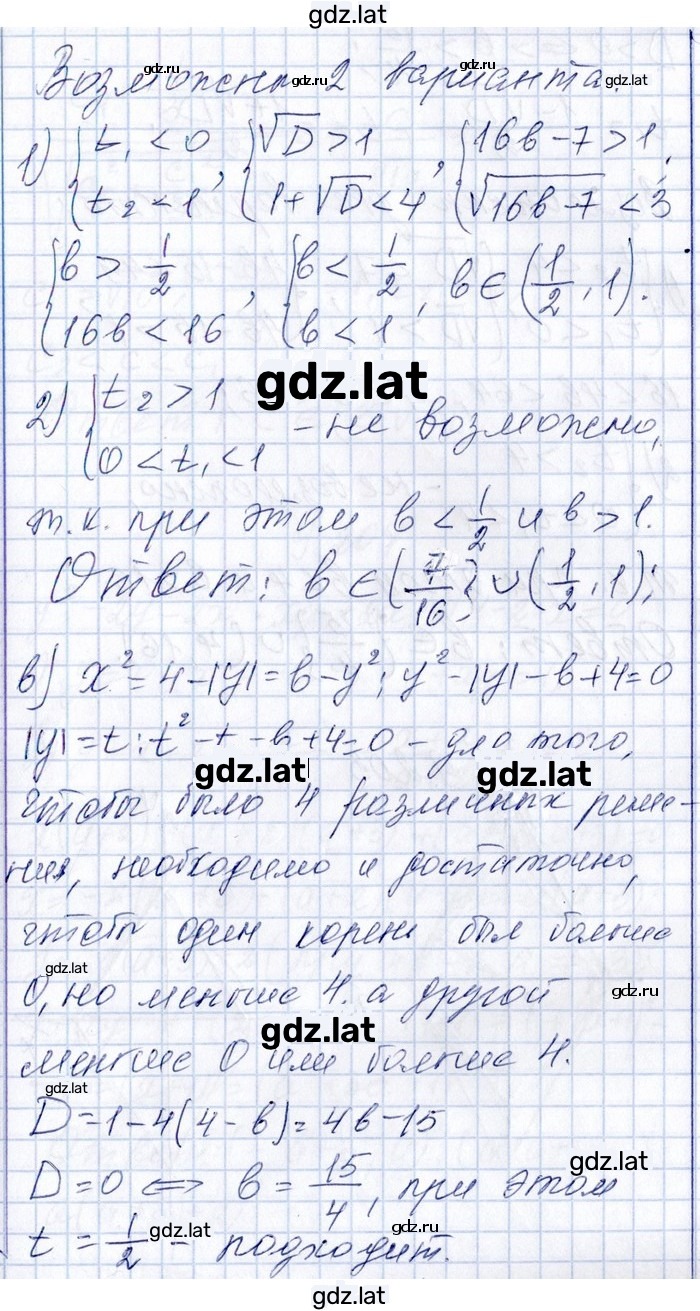 gdz.lat
Возможны 2 варианта.
gdz.lat gdz.ru gdz.ru gdz.lat gdz.ru
1) { t₁ < 0, t₂ < 1 , { √D > 1, 1+√D < 4 , { 16b - 7 > 1, √(16b-7) < 3
{ b > 1/2, 16b < 16 , { b < 1/2, b < 1 , b ∈ (1/2, 1).
gdz.lat
2) { t₂ > 1, 0 < t₁ < 1 - не возможно,
т.к. при этом b < 1/2 и b > 1.
Ответ: b ∈ {7/16} ∪ (1/2, 1);
в) x² = 4 - |y| = b - y²; y² - |y| - b + 4 = 0
|y| = t: t² - t - b + 4 = 0 - для того,
gdz.lat gdz.lat
чтобы было 4 различных реше-
ния, необходимо и достаточно,
чтобы один корень был больше
gdz.lat
0, но меньше 4. а другой
gdz.ru
gdz.lat
меньше 0 или больше 4.
gdz.lat
D = 1 - 4(4 - b) = 4b - 15
gdz.lat
D = 0 ⟺ b = 15/4, при этом
gdz.lat gdz.ru
t = 1/2 - подходит.
gdz.lat